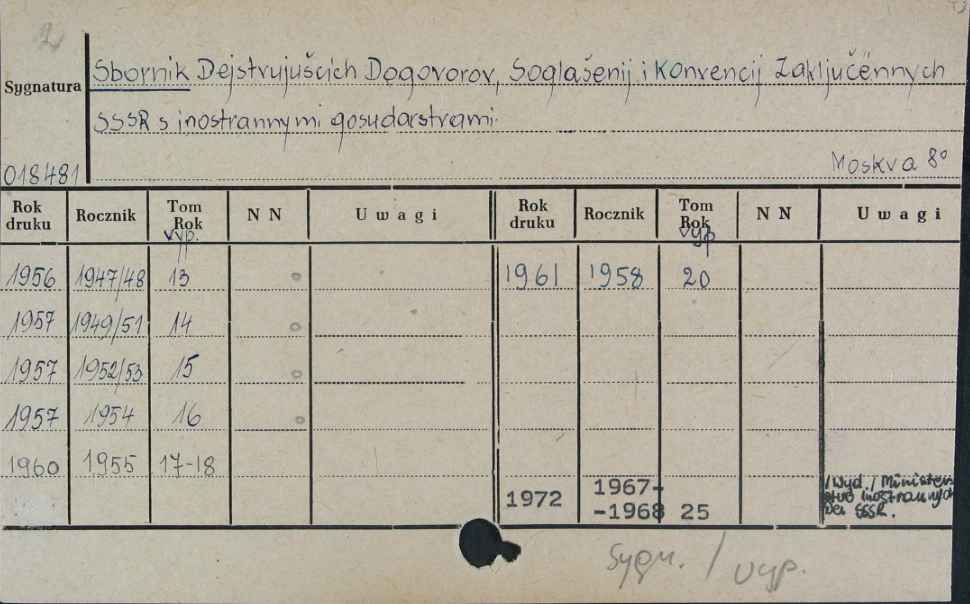 2
Sbornik Dejstvujuščich Dogovorov, Soglašenij i Konvencij Zaključënnych
Sygnatura
SSSR s inostrannymi gosudarstvami.
018481
Moskva 8°
Rok druku Rocznik Tom Rok vyp. NN Uwagi Rok druku Rocznik Tom Rok vyp NN Uwagi
1956 1947/48 13 1961 1958 20
1957 1949/51 14
1957 1952/53 15
1957 1954 16
1960 1955 17-18
1972 1967-
-1968 25
/Wyd./ Minister
stvo inostrannych
del SSSR.
Sygn. / vyp.